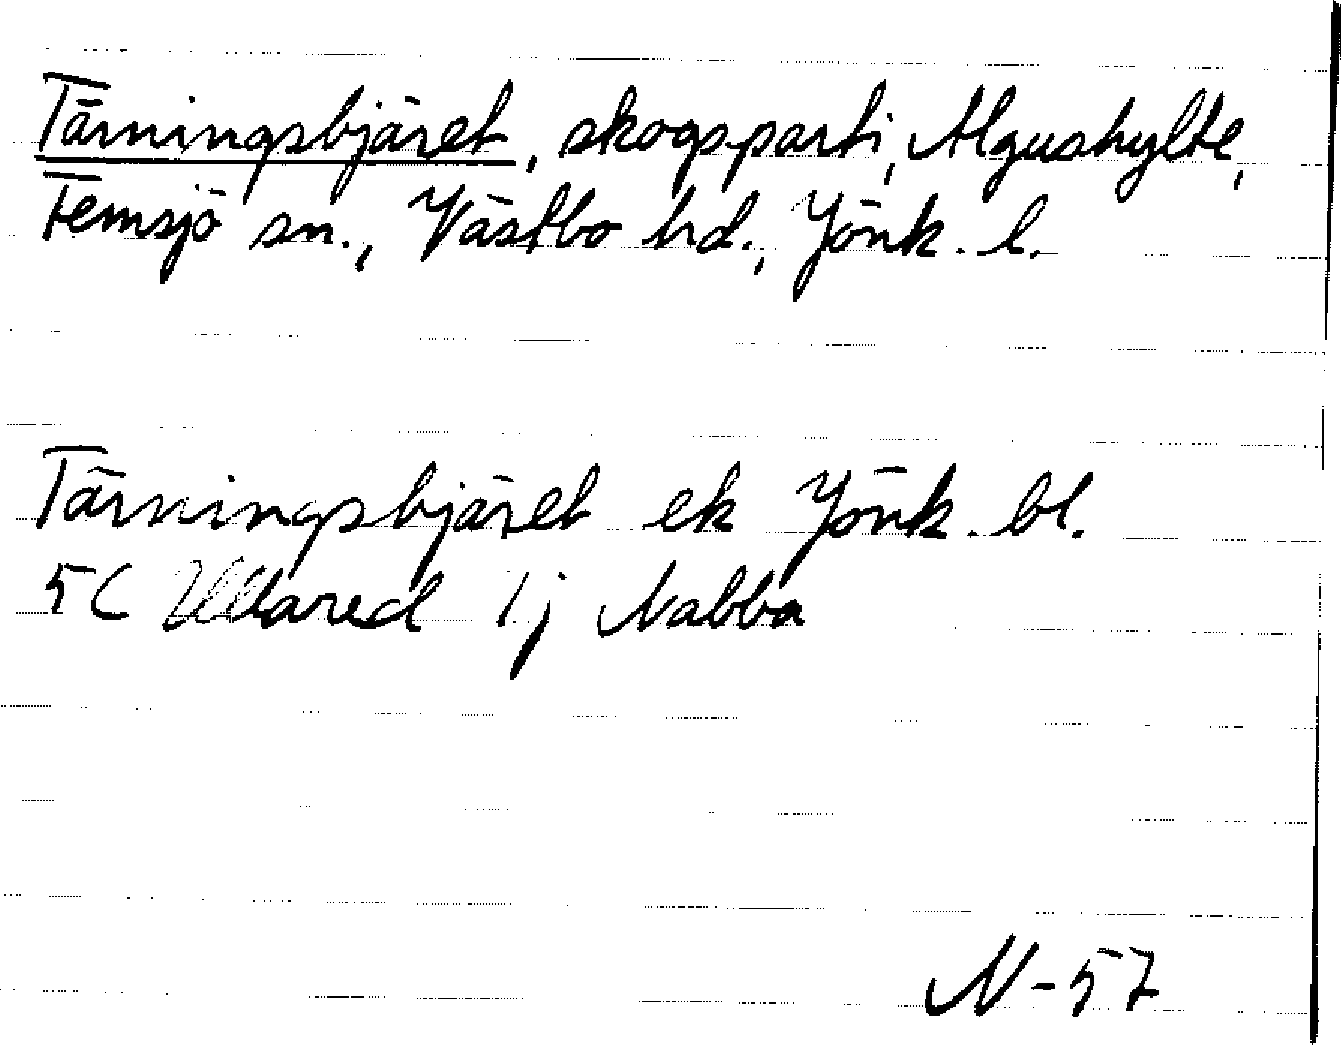 Tärningsbjäret, skogsparti, Algushylte,
Femsjö sn., Västbo hd., Jönk. l.
Tärningsbjäret ek Jönk. bl.
5C Ullared 1j Nabba
N-57